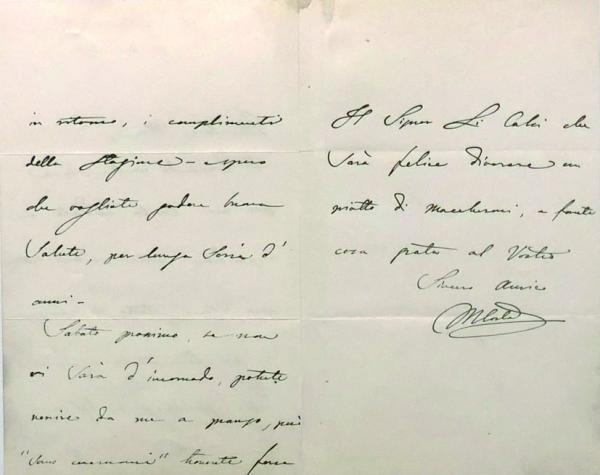 in ritorno, i complimenti
della Stagione - e spero
che vogliate godere buona
Salute, per lunga Serie d'
anni -
Sabato prossimo, se non
vi Sarà d'incomodo, potete
venire da me a pranzo, più
"Sans ceremonie" troverete forse
Il Signor Li Calsi che
Sarà felice divorare un
piatto di maccheroni, e farete
cosa grata al Vostro
Sincero Amico
MCosta